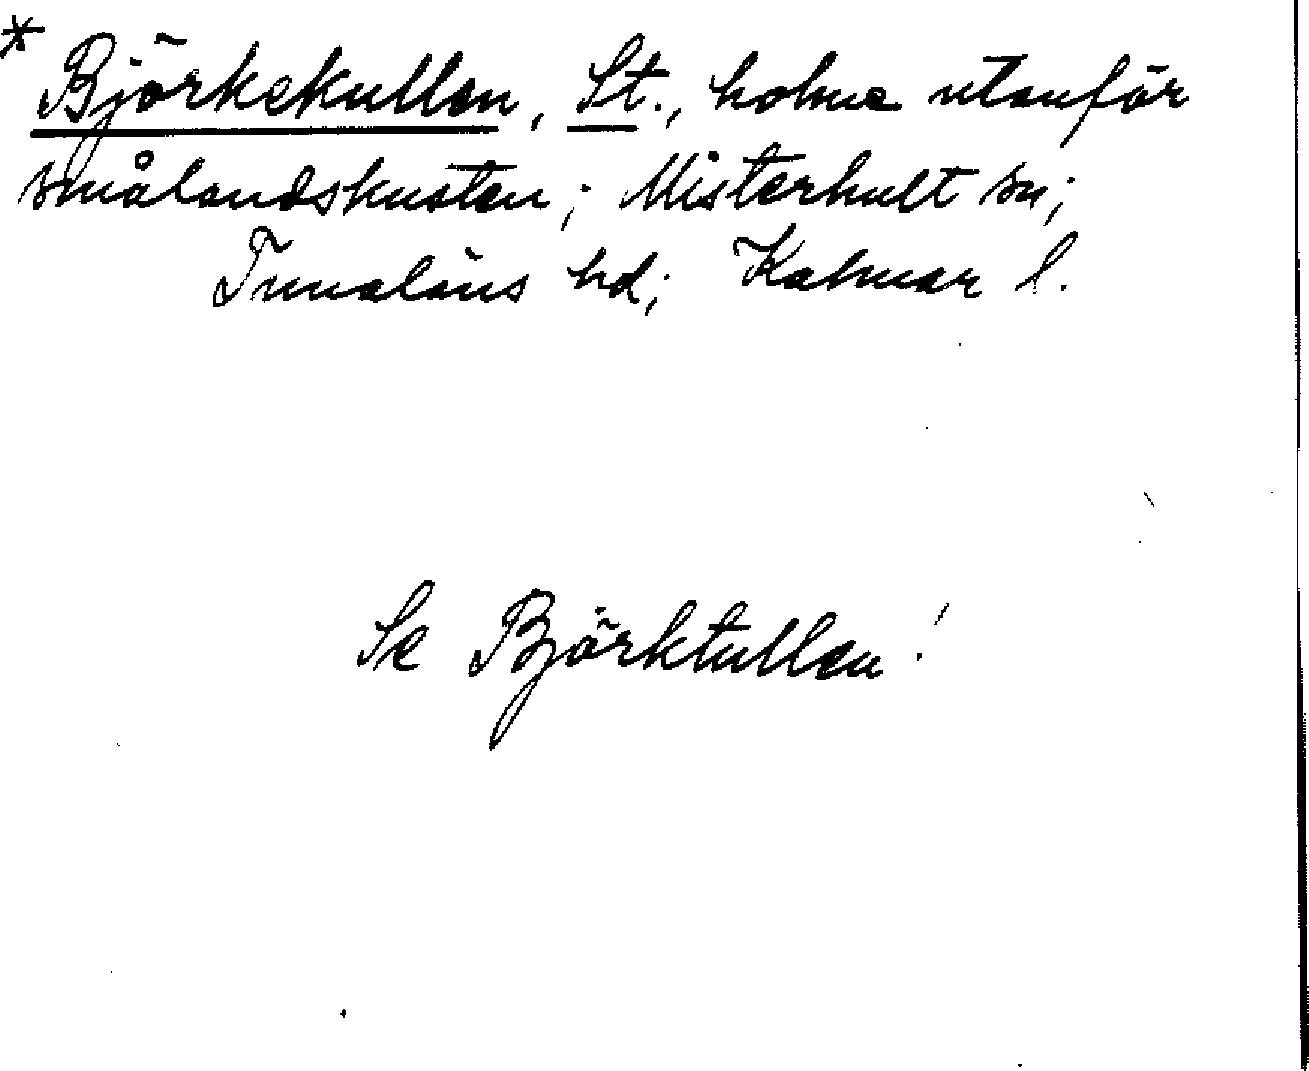 * Björkekullen, St., holme utanför
smålandskusten; Misterhult sn;
Tunaläns hd; Kalmar l.
Se Björktullen!